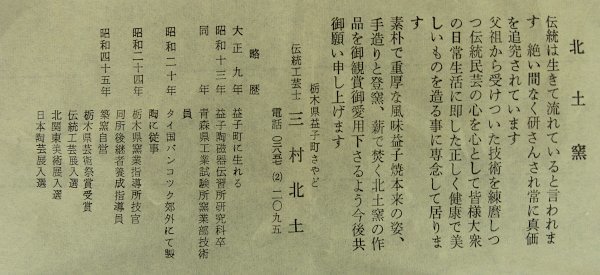 北土窯
伝統は生きて流れていると言われま
す 絶い間なく研さんされ常に真価
を追究されています
父祖から受けついだ技術を練磨しつ
つ伝統民芸の心を心として皆様大衆
の日常生活に即した正しく健康で美
しいものを造る事に専念して居りま
す
素朴で重厚な風味益子焼本来の姿、
手造りと登窯、薪で焚く北土窯の作
品を御観賞御愛用下さるよう今後共
御願い申し上げます
栃木県益子町さやど
伝統工芸士 三村北土
電話(〇二八五七)(2)二〇九五
略歴
大正九年 益子町に生れる
昭和十三年 益子陶磁器伝習所研究科卒
同年 青森県工業試験所窯業部技術
員
昭和二十年 タイ国バンコック郊外にて製
陶に従事
昭和二十四年 栃木県窯業指導所技官
同所後継者養成指導員
昭和四十五年 築窯自営
栃木県芸術祭賞受賞
伝統工芸展入選
北関東美術展入選
日本陶芸展入選